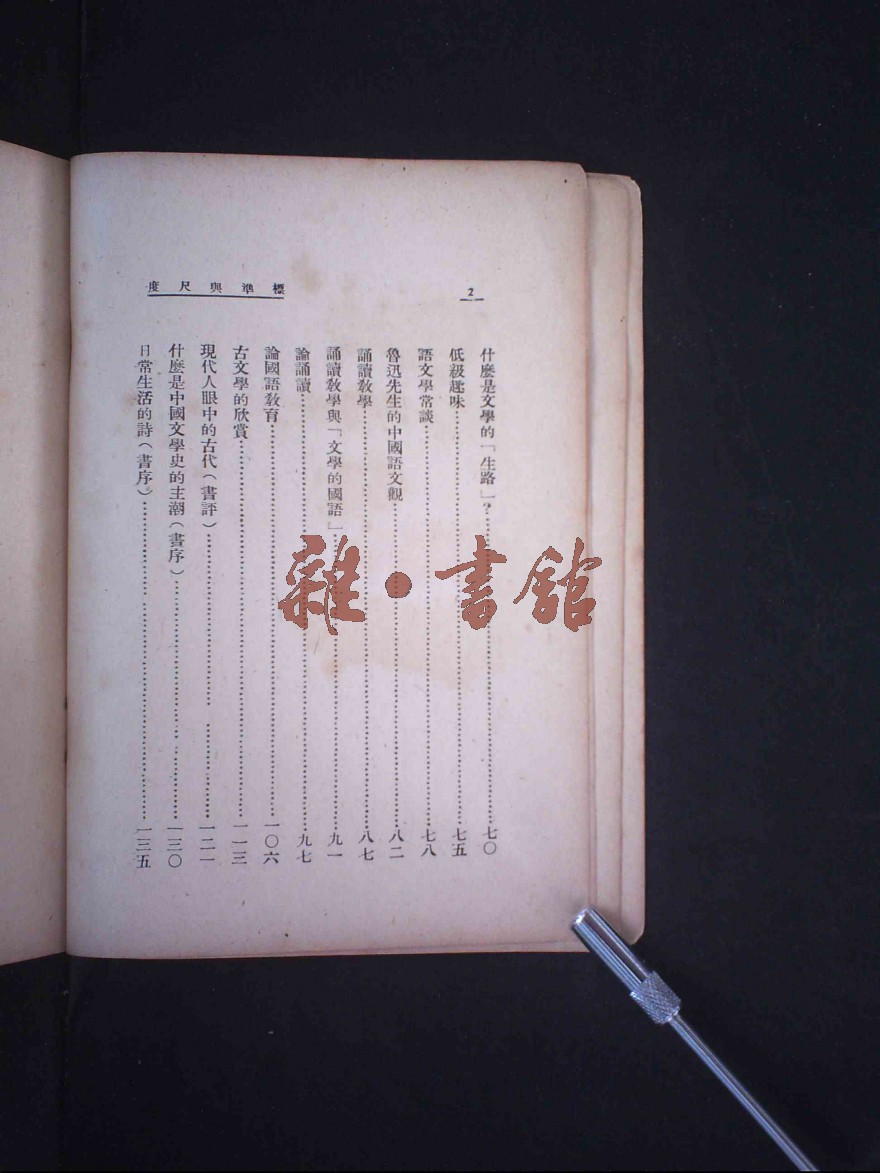 標準與尺度
2
什麼是文學的「生路」?……七〇
低級趣味……七五
語文學常談……七八
魯迅先生的中國語文觀……八二
誦讀教學……八七
誦讀教學與「文學的國語」……九一
論誦讀……九七
論國語教育……一〇六
古文學的欣賞……一一三
現代人眼中的古代(書評)……一二一
什麼是中國文學史的主潮(書序)……一三〇
日常生活的詩(書序)……一三五
雜·書館